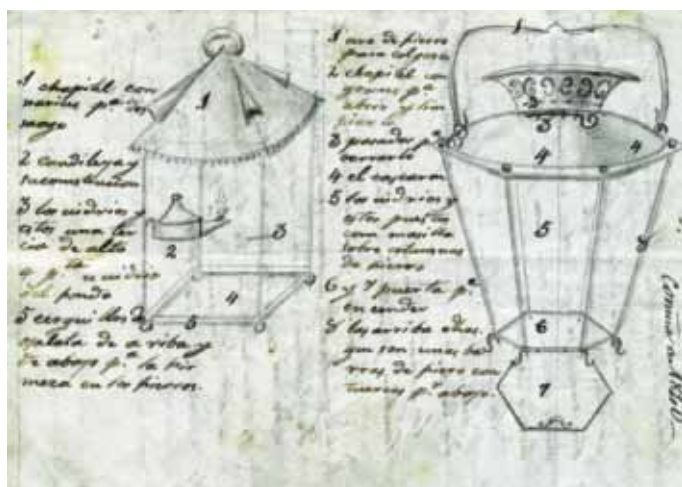 1 chapitel con
narices pª. des
aogo
2 candileja y
su construcion
3 los vidrios
estos una ter
cia de alto
4 vidrio
del fondo
5 cerquillos de
ojalata de a riba y
de abajo pª. la fir
meza en los fierros.
1 2 3 4 5
1 aro de fierro
para colgarse
2 chapitel con
gosnes pª.
abrir y lim
piarlo
3 pasador pª.
cerrarlo
4 el cascaron
5 los vidrios y
estos puestos
con masilla
sobre colunas
de fierros
6 y 7 puerta pª.
encender
8 los arriba
que son unas ba
rras de fierro con
pª. abajo.
1 2 3 4 4 5 6 7 8